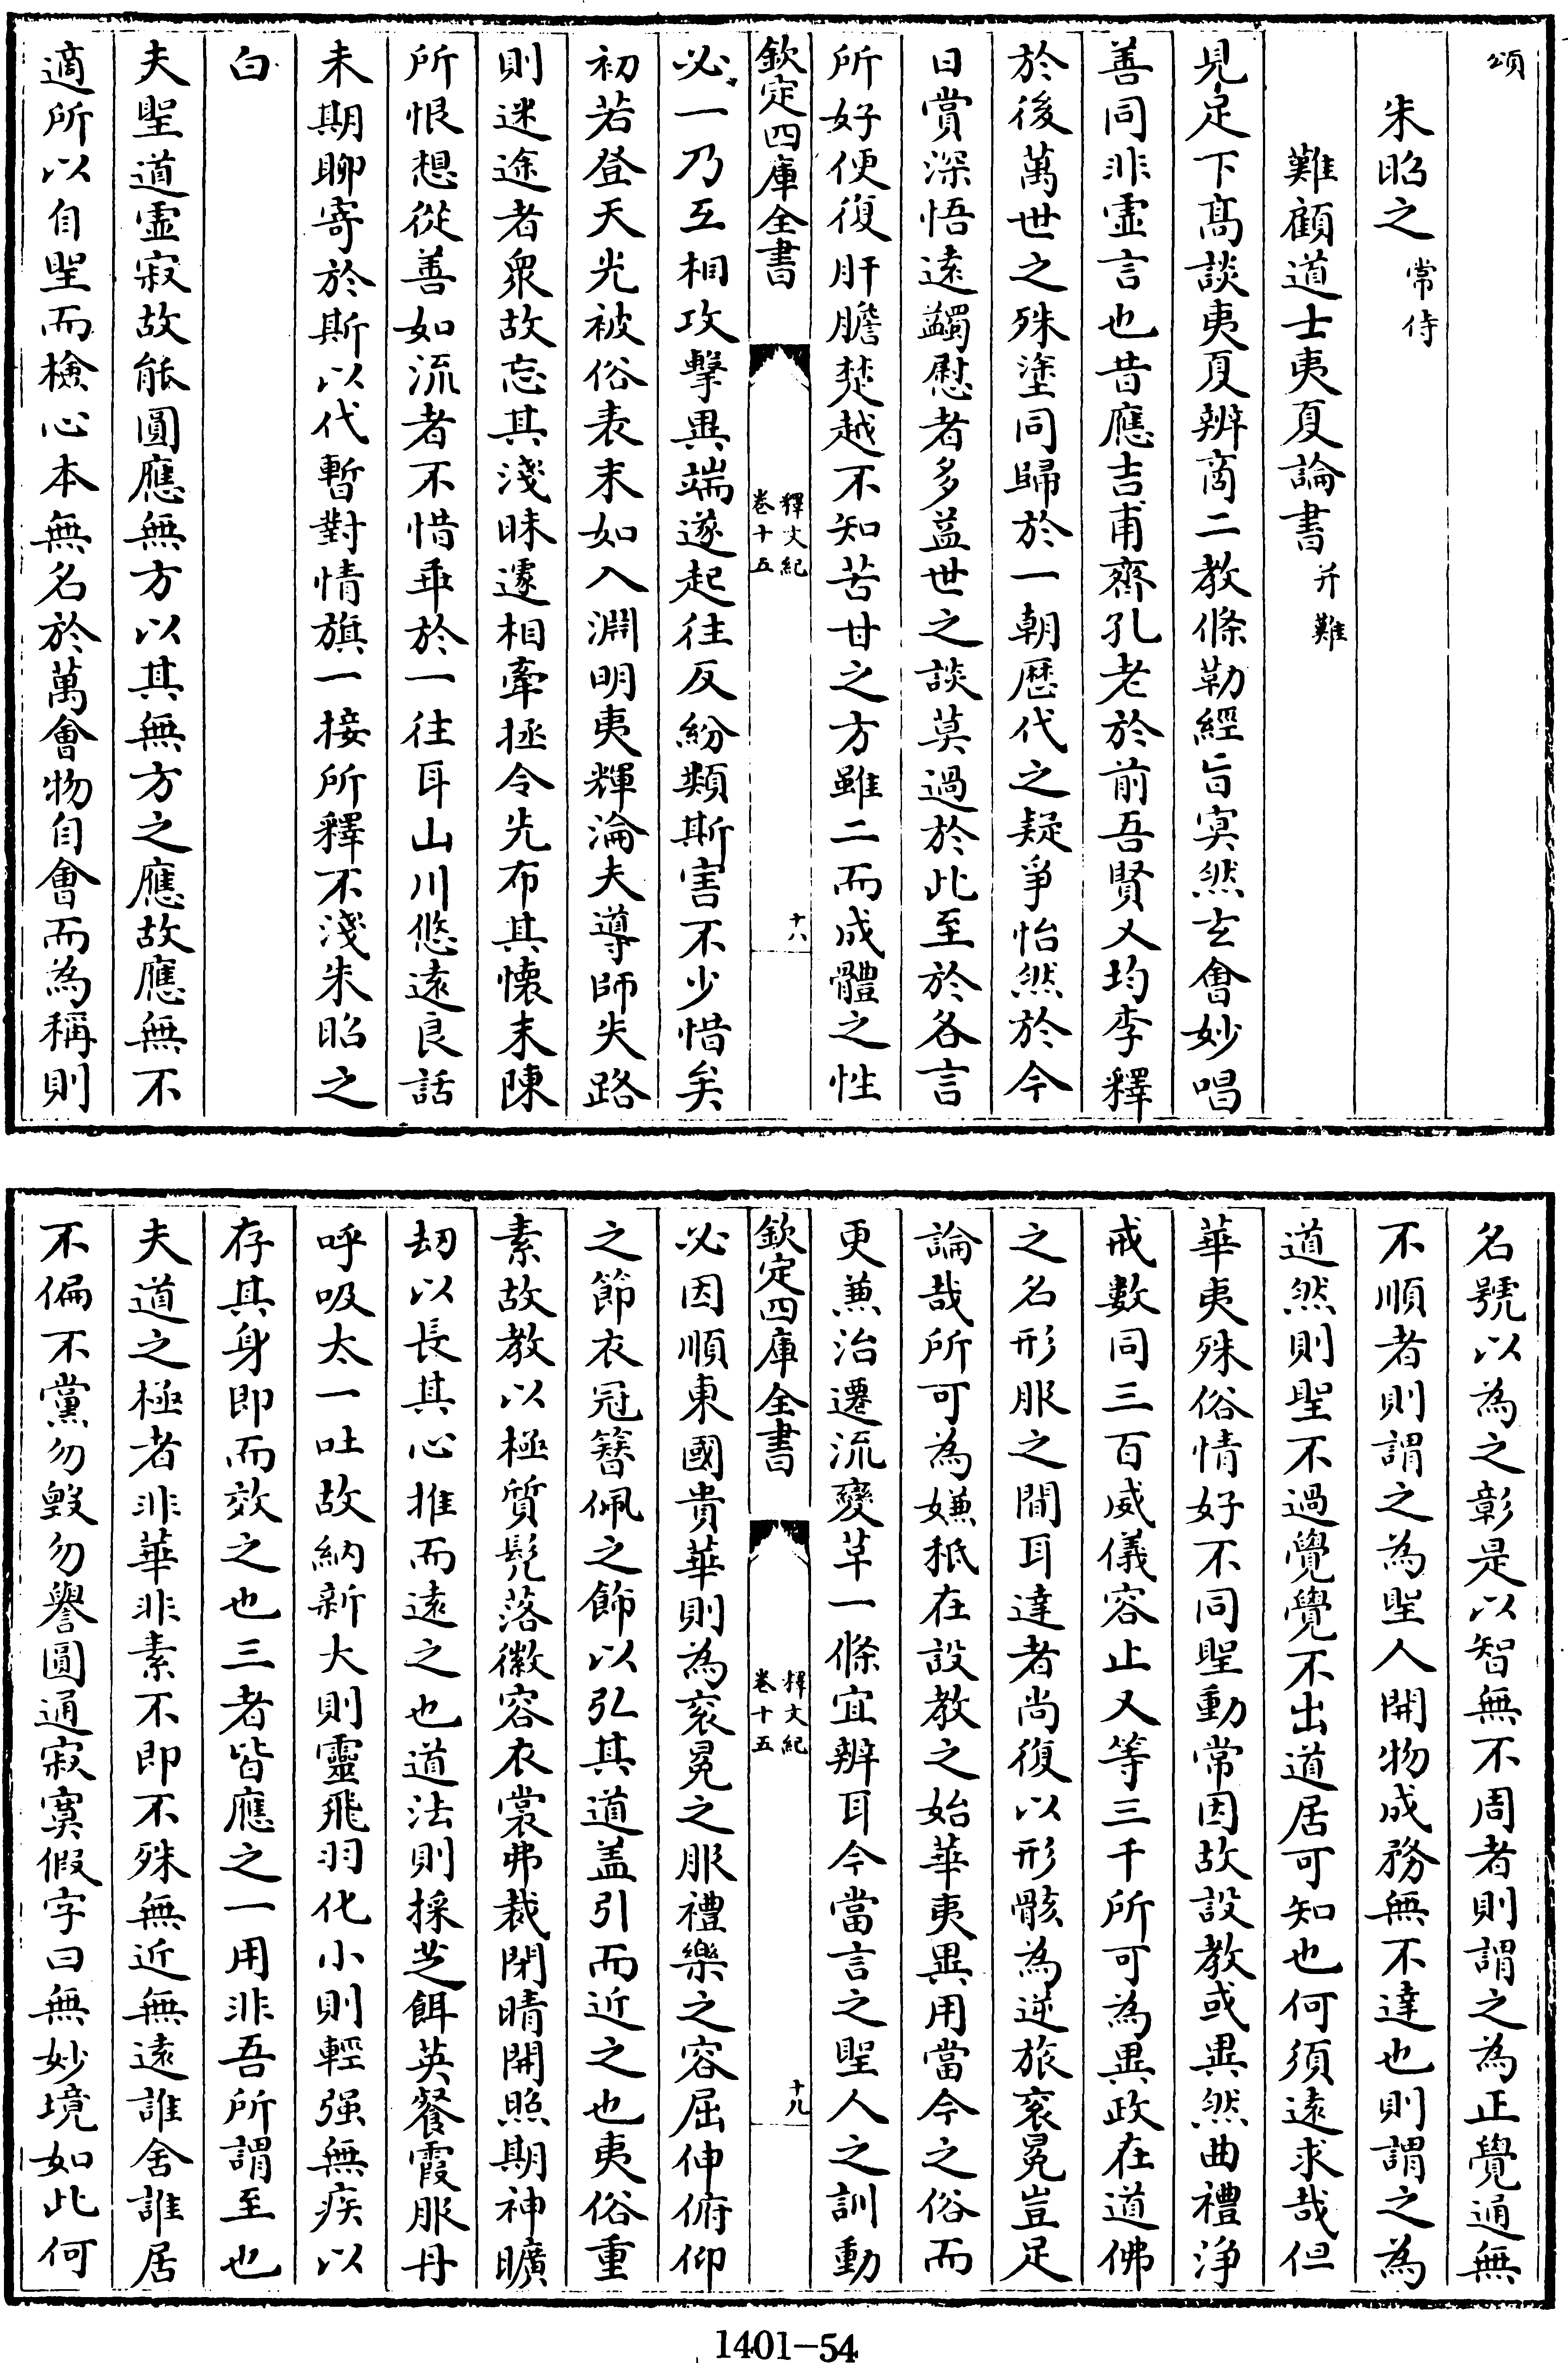 頌
朱昭之常侍
難顧道士夷夏論書并難
見足下髙談夷夏辨商二教條勒經旨㝠然𤣥會妙唱
善同非虛言也昔應吉甫齊孔老於前吾賢又均李釋
於後萬世之殊塗同歸於一朝歴代之疑爭怡然於今
日賞深悟遠蠲慰者多益世之談莫過於此至於各言
所好便復肝膽楚越不知苦甘之方雖二而成體之性
欽定四庫全書
釋文紀
卷十五
十八
必一乃互相攻擊異端遂起往反紛類斯害不少惜矣
初若登天光被俗表末如入淵明夷輝淪夫導師失路
則迷途者衆故忘其淺昧遽相牽拯今先布其懐末陳
所恨想從善如流者不惜乖於一往耳山川悠遠良話
未期聊寄於斯以代暫對情旗一接所釋不淺朱昭之
白
夫聖道虛寂故能圓應無方以其無方之應故應無不
適所以自聖而檢心本無名於萬會物自會而為稱則
名號以為之彰是以智無不周者則謂之為正覺通無
不順者則謂之為聖人開物成務無不達也則謂之為
道然則聖不過覺覺不出道居可知也何須逺求哉但
華夷殊俗情好不同聖動常因故設教或異然曲禮淨
戒數同三百威儀容止又等三千所可為異政在道佛
之名形服之間耳達者尚復以形骸為逆旅衮冕豈足
論哉所可為嫌秪在設教之始華夷異用當今之俗而
更兼治遷流變革一條宜辨耳今當言之聖人之訓動
欽定四庫全書
釋文紀
卷十五
十九
必因順東國貴華則為衮冕之服禮樂之容屈伸俯仰
之節衣冠簪佩之飾以弘其道盖引而近之也夷俗重
素故教以極質髠落徽容衣裳弗裁閉晴開照期神曠
劫以長其心推而遠之也道法則採芝餌英餐霞服丹
呼吸太一吐故納新大則靈飛羽化小則輕强無疾以
存其身即而效之也三者皆應之一用非吾所謂至也
夫道之極者非華非素不即不殊無近無遠誰舍誰居
不偏不黨勿毀勿譽圓通寂寞假字曰無妙境如此何
1401-54